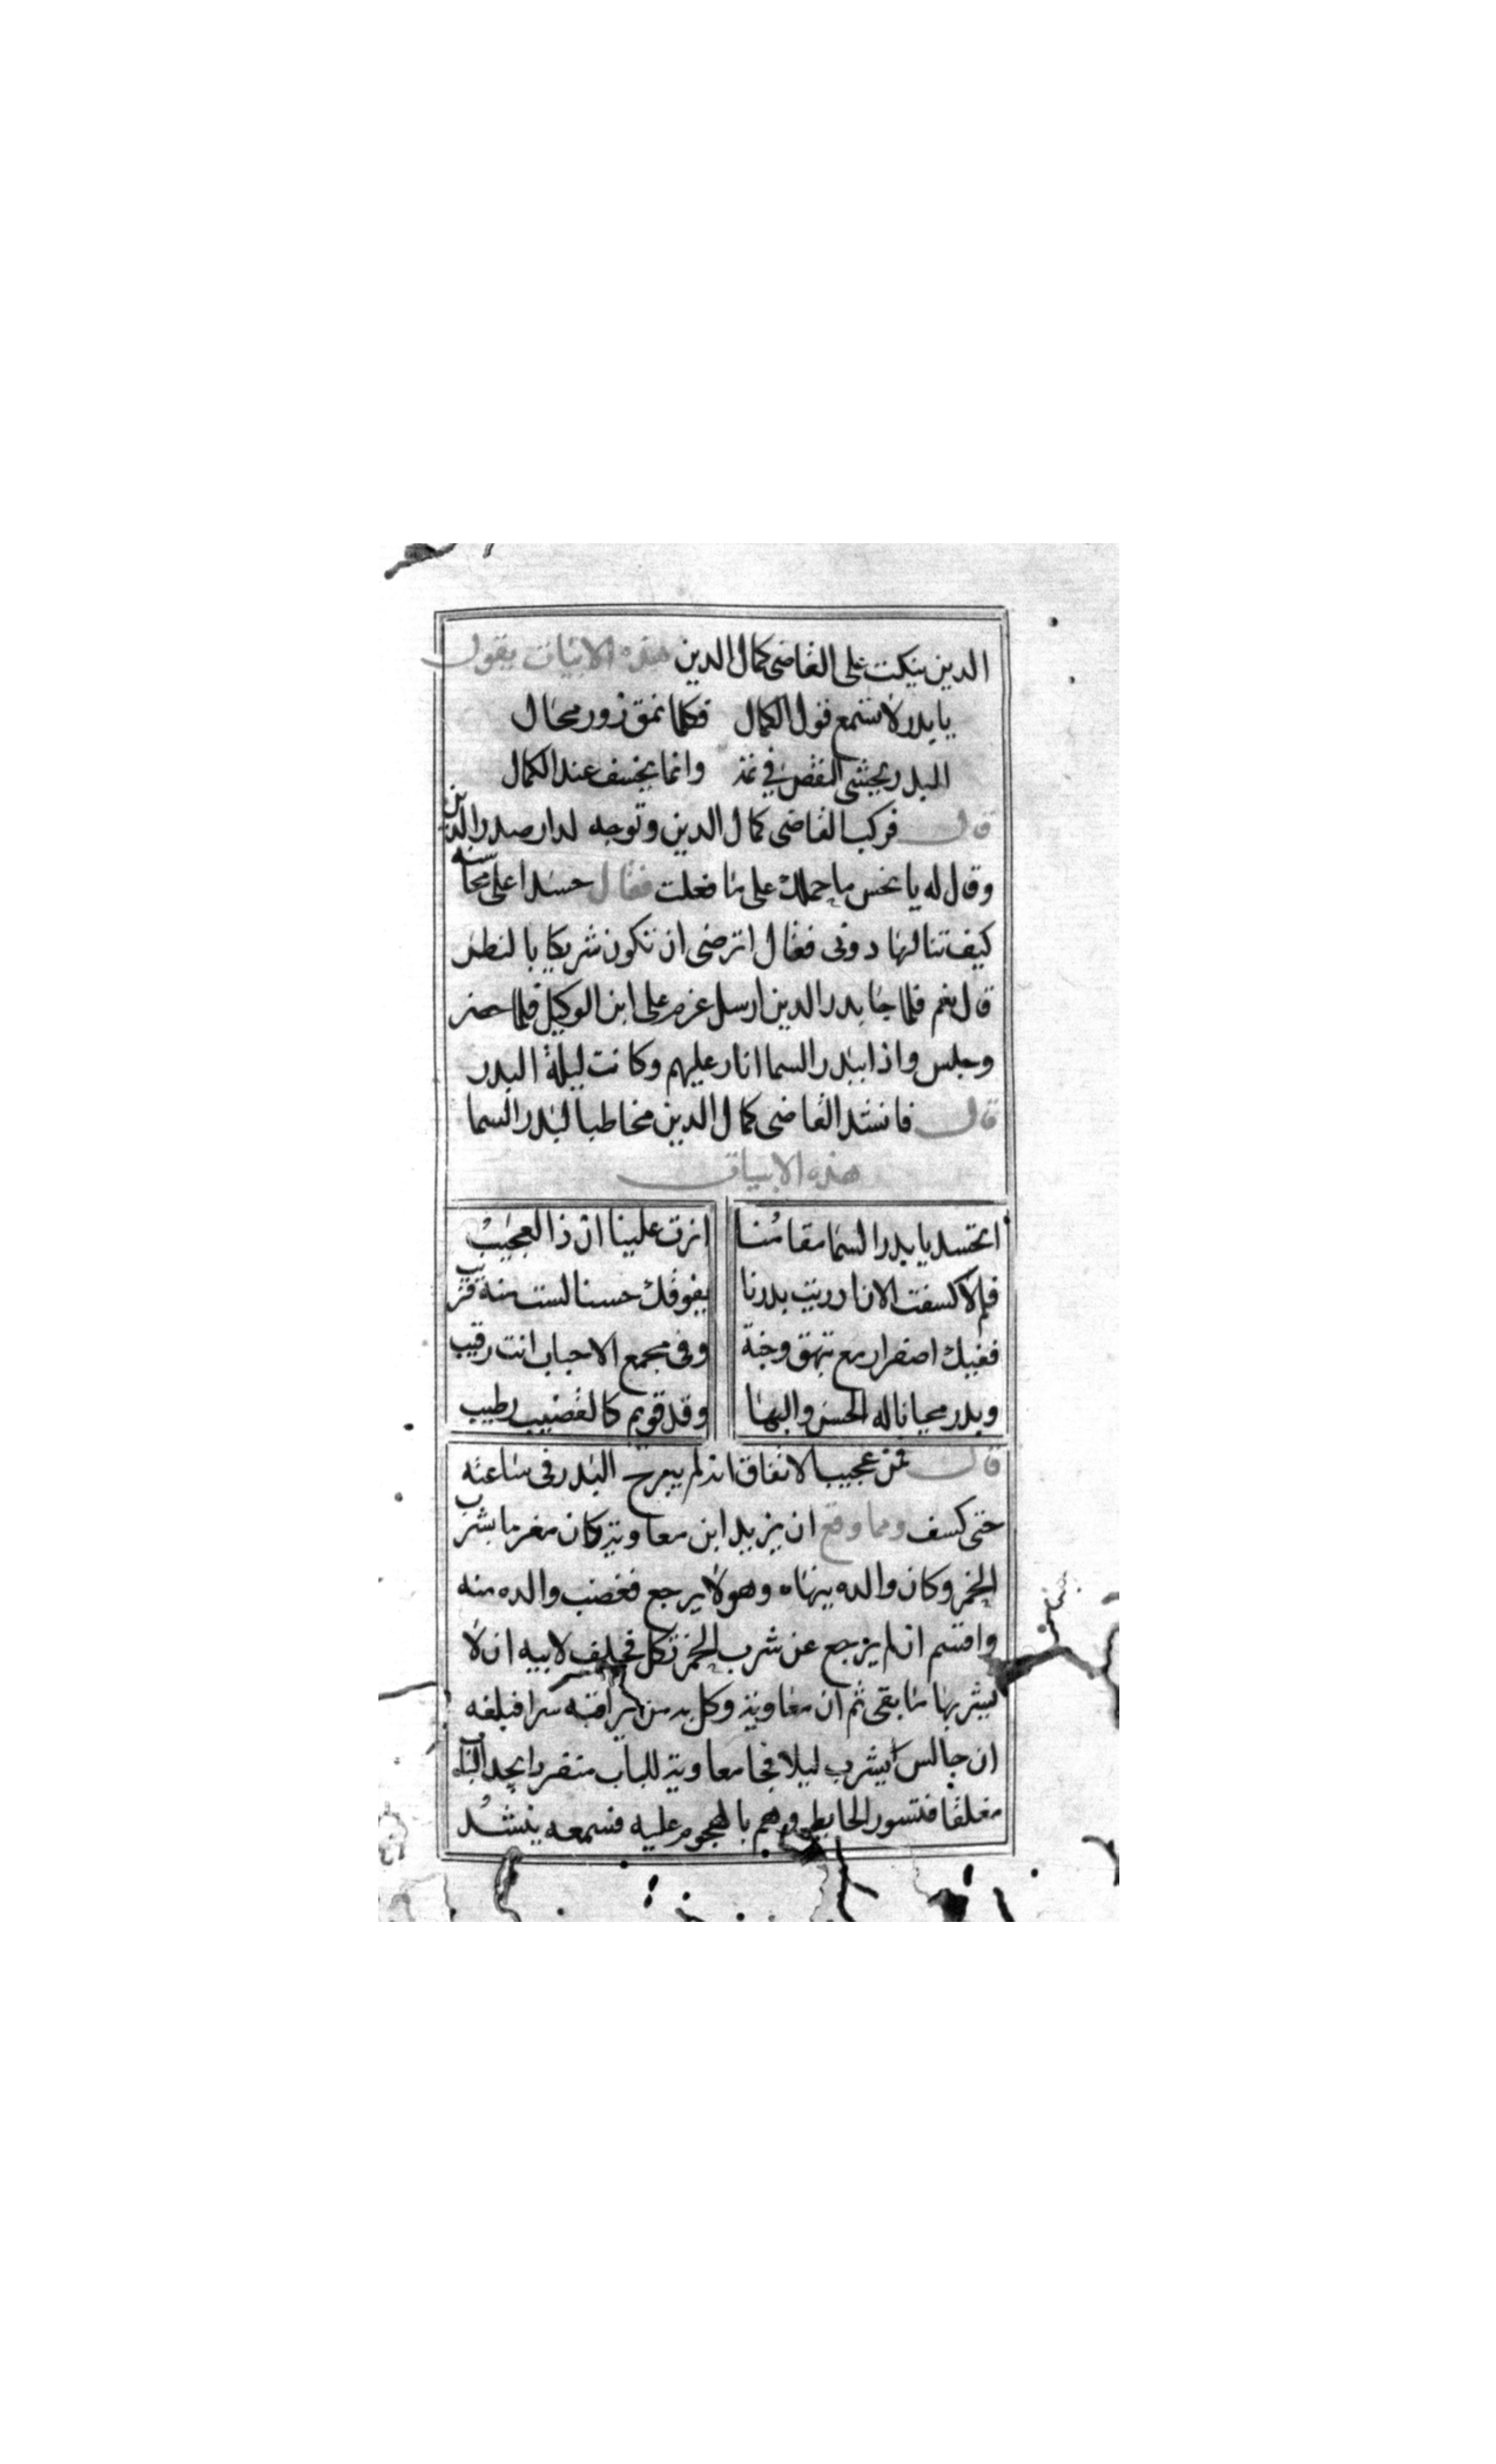 الدين ينكت على القاضى كمال الدين هذه الابيات يقول
يا بدر لا تسمع قول الكمال فكلما نمق زور محال
البدر يخشى النقص في تمه وانما يخسف عند الكمال
قال فركب القاضى كمال الدين وتوجه لدار صدر الدين
وقال له يا نحس ما حملك على ما فعلت فقال حسدا على محاسنه
كيف تنالها دونى فقال اترضى ان تكون شريكا بالنظر
قال نعم فلما جا بدر الدين ارسل عزم على ابن الوكيل فلما حضر
وجلس واذا ببدر السما انار عليهم وكانت ليلة البدر
قال فانشد القاضى كمال الدين مخاطبا لبدر السما
هذه الابيات
اتحسد يا بدر السما مقامنا انرت علينا ان ذا لعجيب
فلم لا كسفت الان اذ ريت بدرنا يفوقك حسنا لست منه قريب
ففيك اصفرار مع تبهق وجنة وفى مجمع الاحباب انت رقيب
وبدر محيانا له الحسن والبها وقد قويم كالقضيب رطيب
قال فمن عجيب الاتفاق انه لم يبرح البدر فى ساعته
حتى كسف ومما وقع ان يزيد ابن معاوية كان مغرما بشرب
الخمر وكان والده ينهاه وهو لا يرجع فغضب والده منه
واقسم ان لم يرجع عن شرب الخمر فحلف لابيه ان لا
يشربها ما بقى ثم ان معاوية وكل به من يراقبه سرا فبلغه
ان جالس يشرب ليلا فجا معاوية للباب متفردا يجد الباب
مغلقا فتسور الحايط وهم بالهجوم عليه فسمعه ينشد